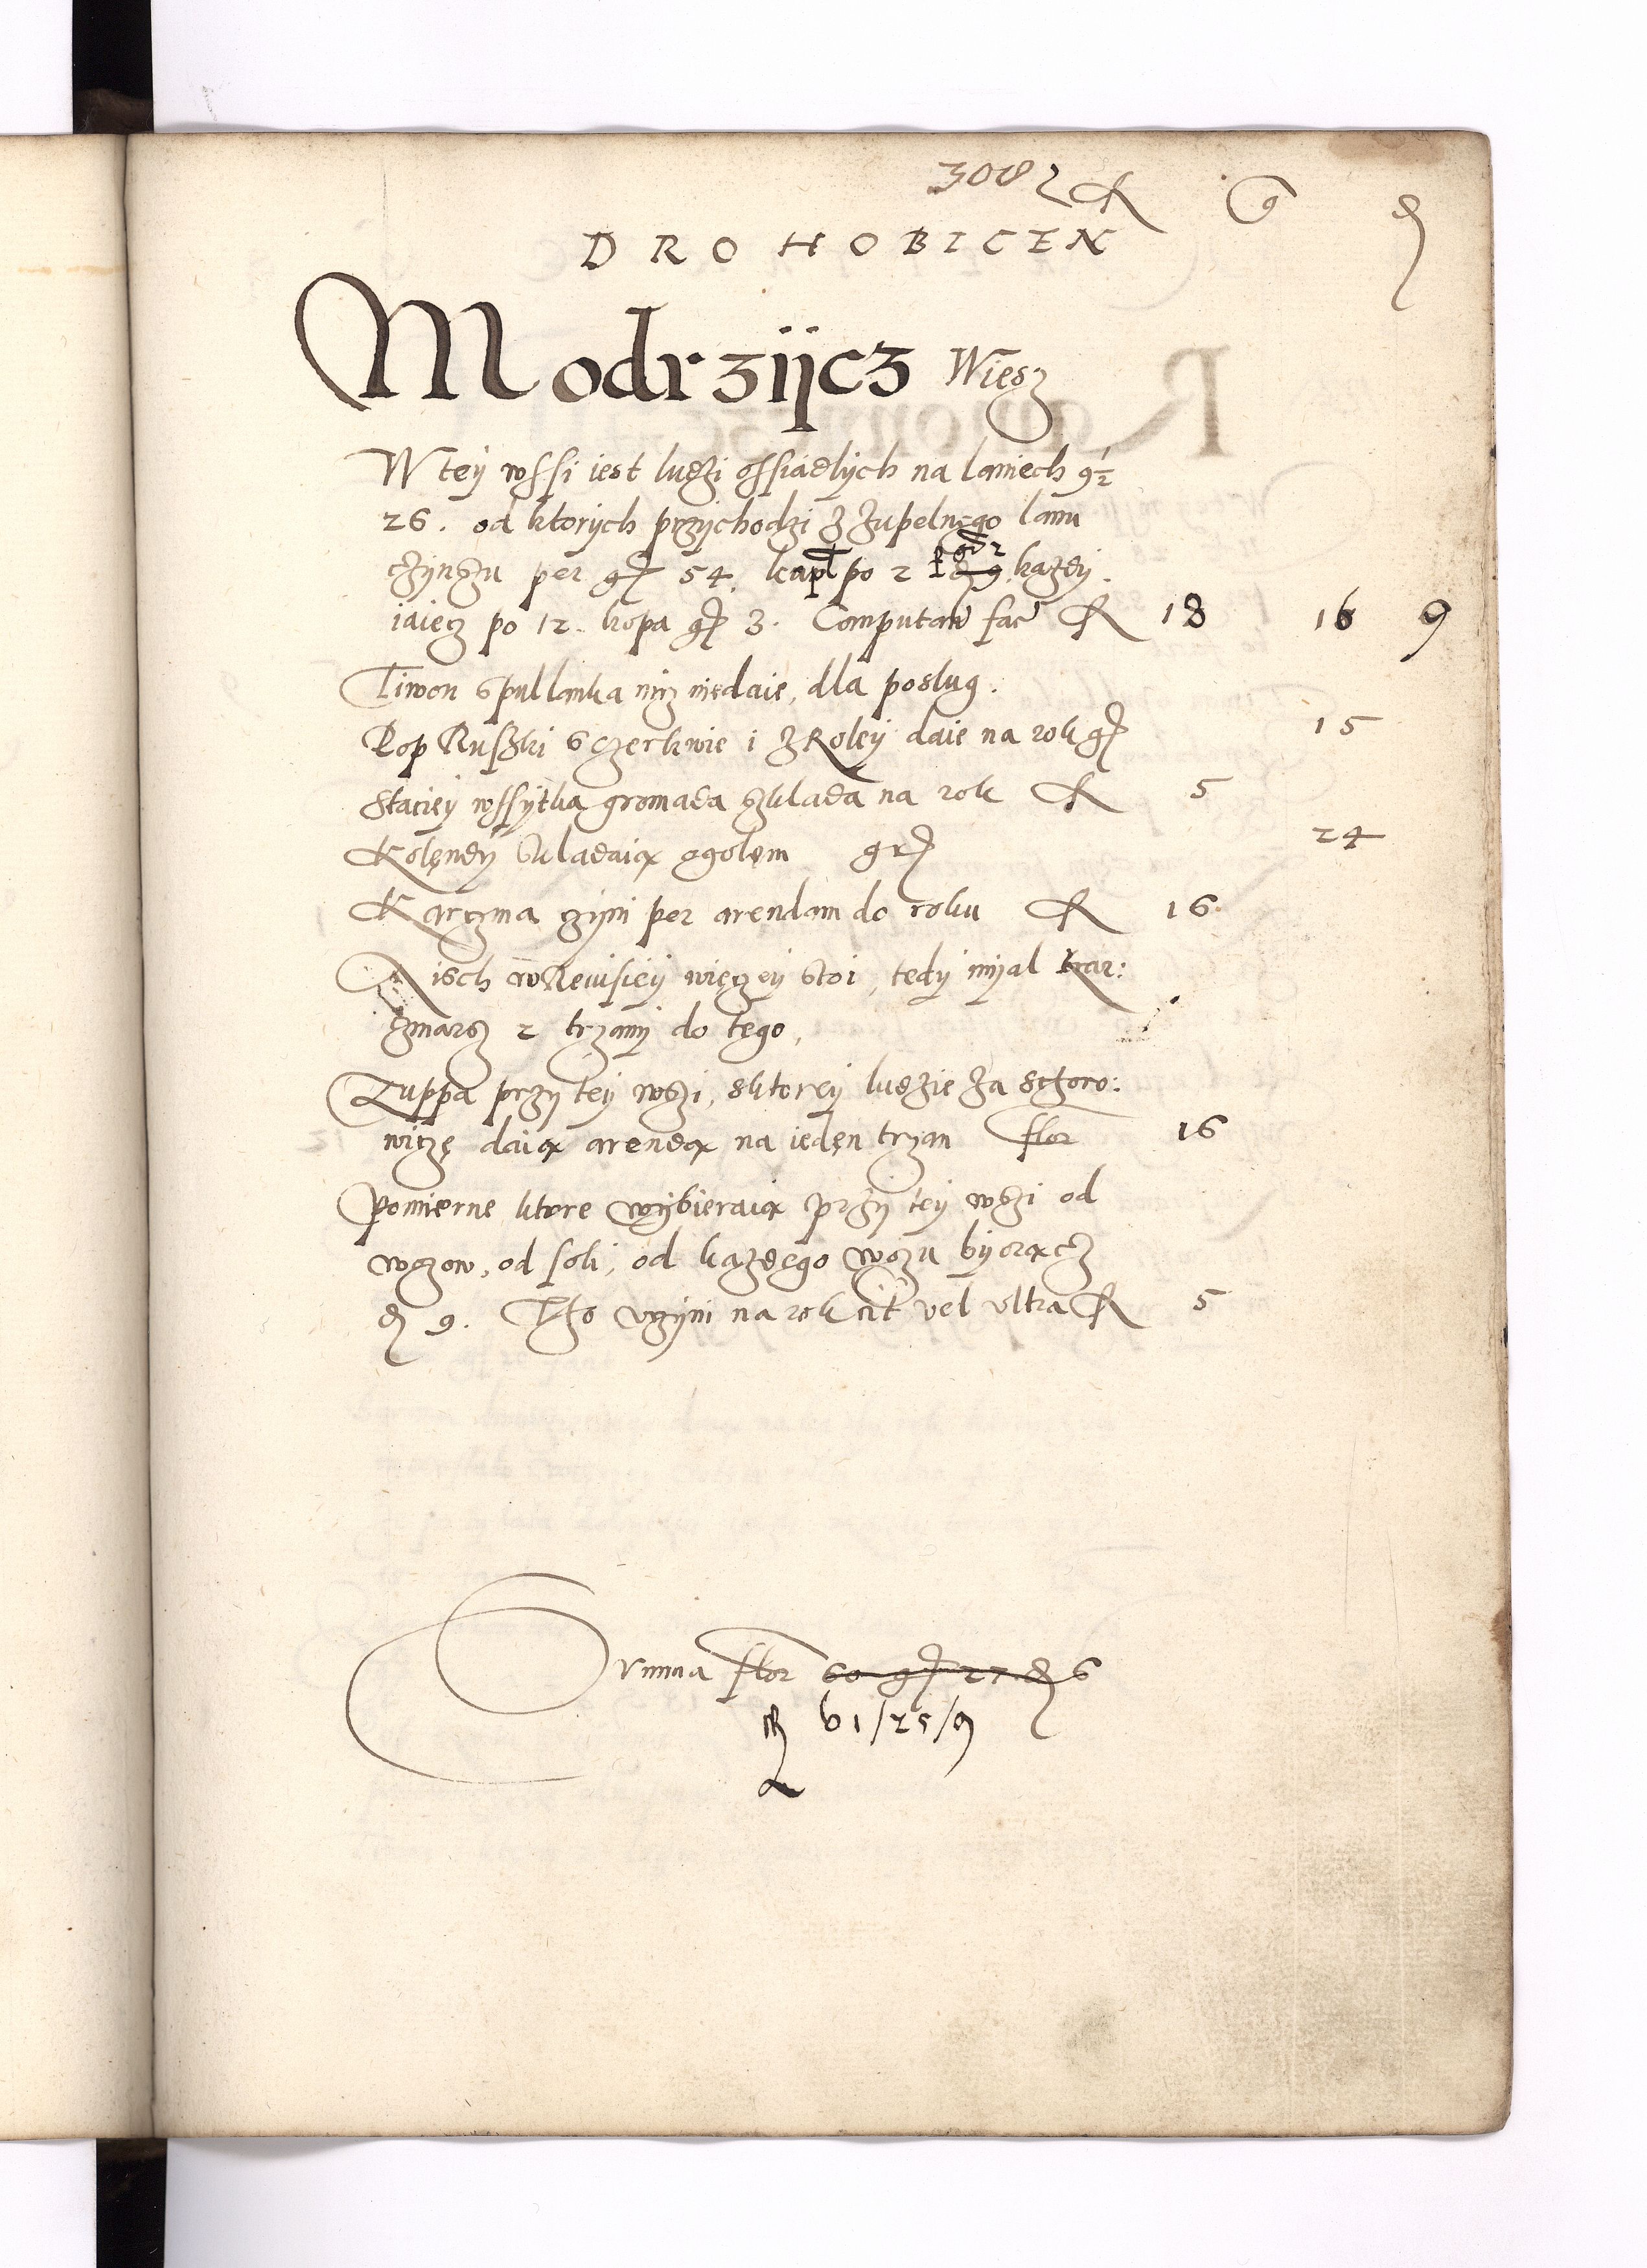 3082 R g d
DROHOBICEN
Modrzijcz Wiesz
W tey wssi iest ludzi ossiadlych na laniech 9½
26. od ktorych przychodzi z zupelnego lanu
czynszu per gr 54. kapl po 2 gr 2 kazdy.
iaiecz po 12. kopa gr 3. Computand fac R 18 16 9
Tiwon spullanka nyz niedaie, dla poslug.
Pop Ruski s czerkwie i z Roley daie na rok gr 15
Staciey wssytka gromada zklada na rok R 5
Kolendy skladaią ogolem gr 24
Karczma czyni per arendam do roku R 16
A isch w Rewisiey więczey stoi, tedy myal kar:
czmarz 2 trzamy do tego,
Zuppa przy tey wszi, sktorey ludzie za sczoro:
wiczę daią arendą na ieden trzan flor 16
Pomierne ktore wybieraią przy tey wszi od
wozow, od soli, od kazdego wozu byorącz
d 9. Tho uczyni na rok cit vel ultra R 5
Summa flor 60 gr 27 d 6
R 61/25/9